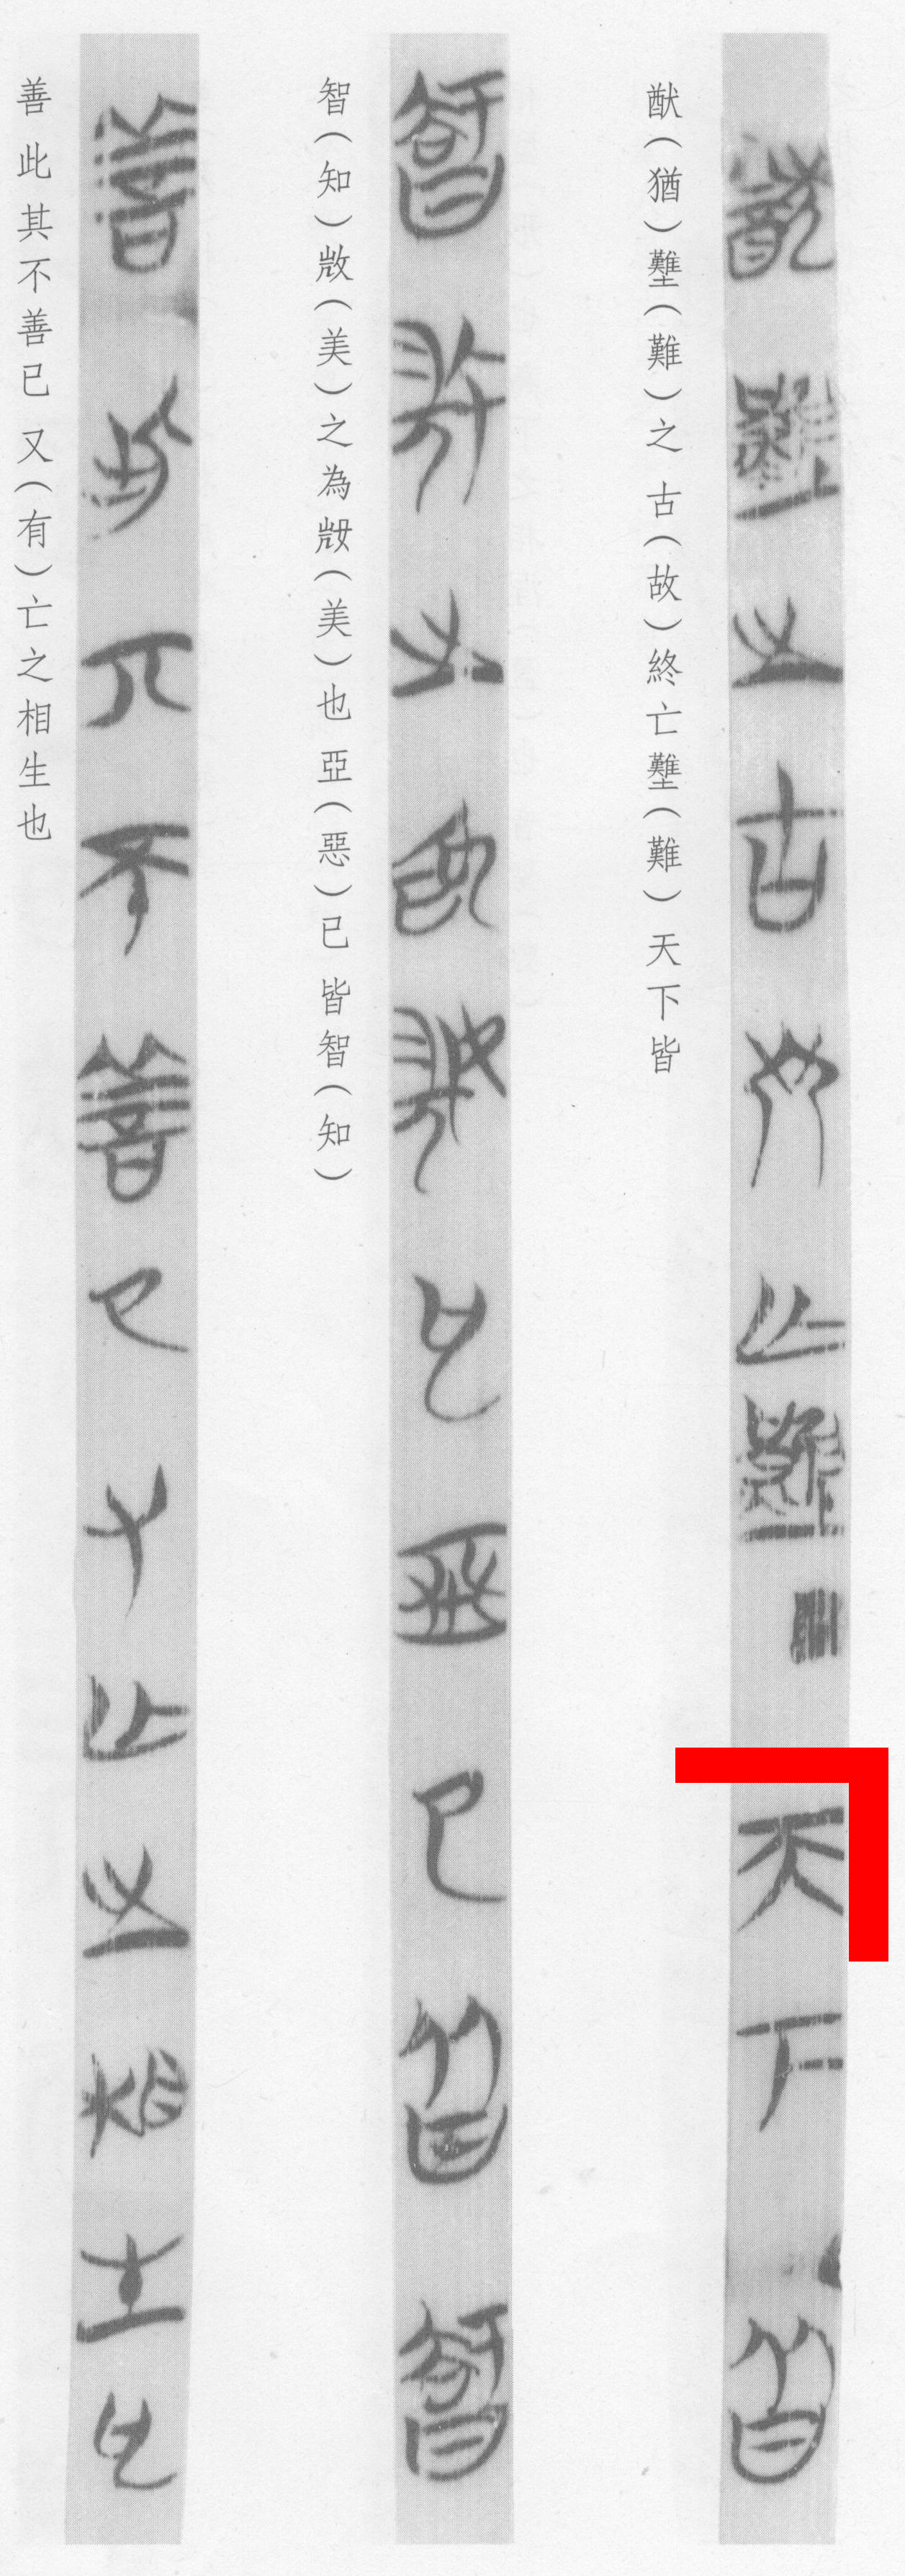 猷（猶）難（難）之古（故）終亡難（難）天下皆
智（知）敚（美）之為（美）也亞（惡）已皆智（知）
善此其不善已又（有）亡之相生也